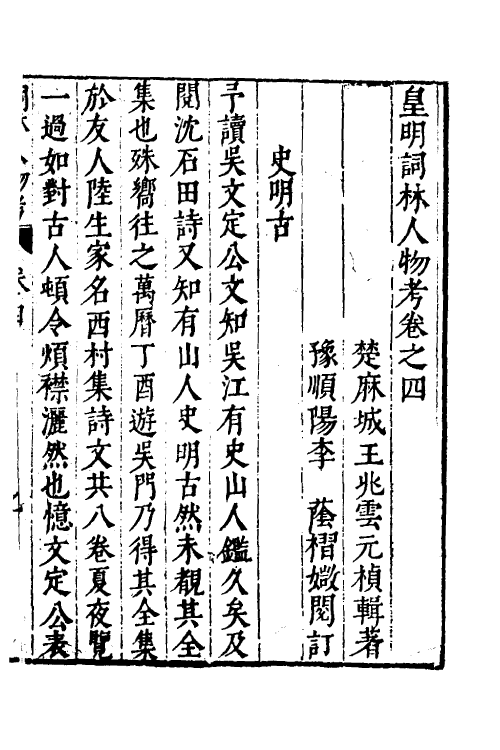 皇明詞林人物考卷之四
楚麻城王兆雲元楨輯著
豫順陽李　蔭襟㜫閱訂
史明古
予讀吳文定公文知吳江有史山人鑑久矣及
閱沈石田詩又知有山人史明古然未覩其全
集也殊嚮往之萬曆丁酉遊吳門乃得其全集
於友人陸生家名西村集詩文共八卷夏夜覽
一過如對古人頓令煩襟灑然也憶文定公表
詞林人物考　卷四